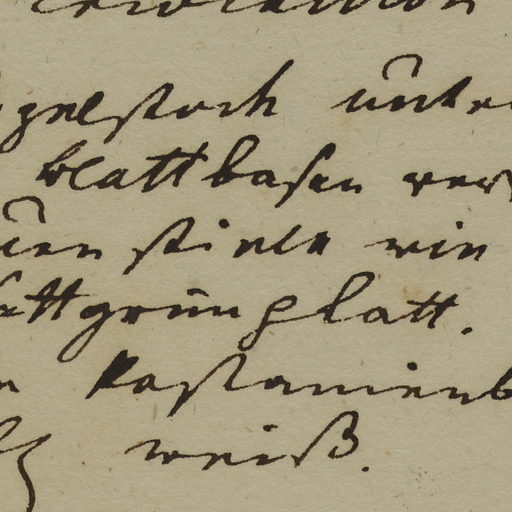 gelstark unter
blattbasen ver
stiele wie
attgrün glatt.
Kastanienb
weiß.